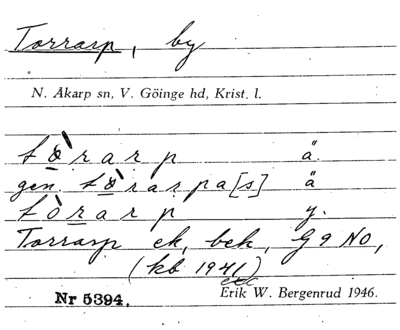 Torrarp, by
N. Åkarp sn, V. Göinge hd, Krist. l.
tò̱rarp ä.
gen. tò̱rarpa[s] ä
tòṟarp y.
Torrarp ek, bek, G 9 NO,
(kb 1941)
Nr 5394. Erik W. Bergenrud 1946.